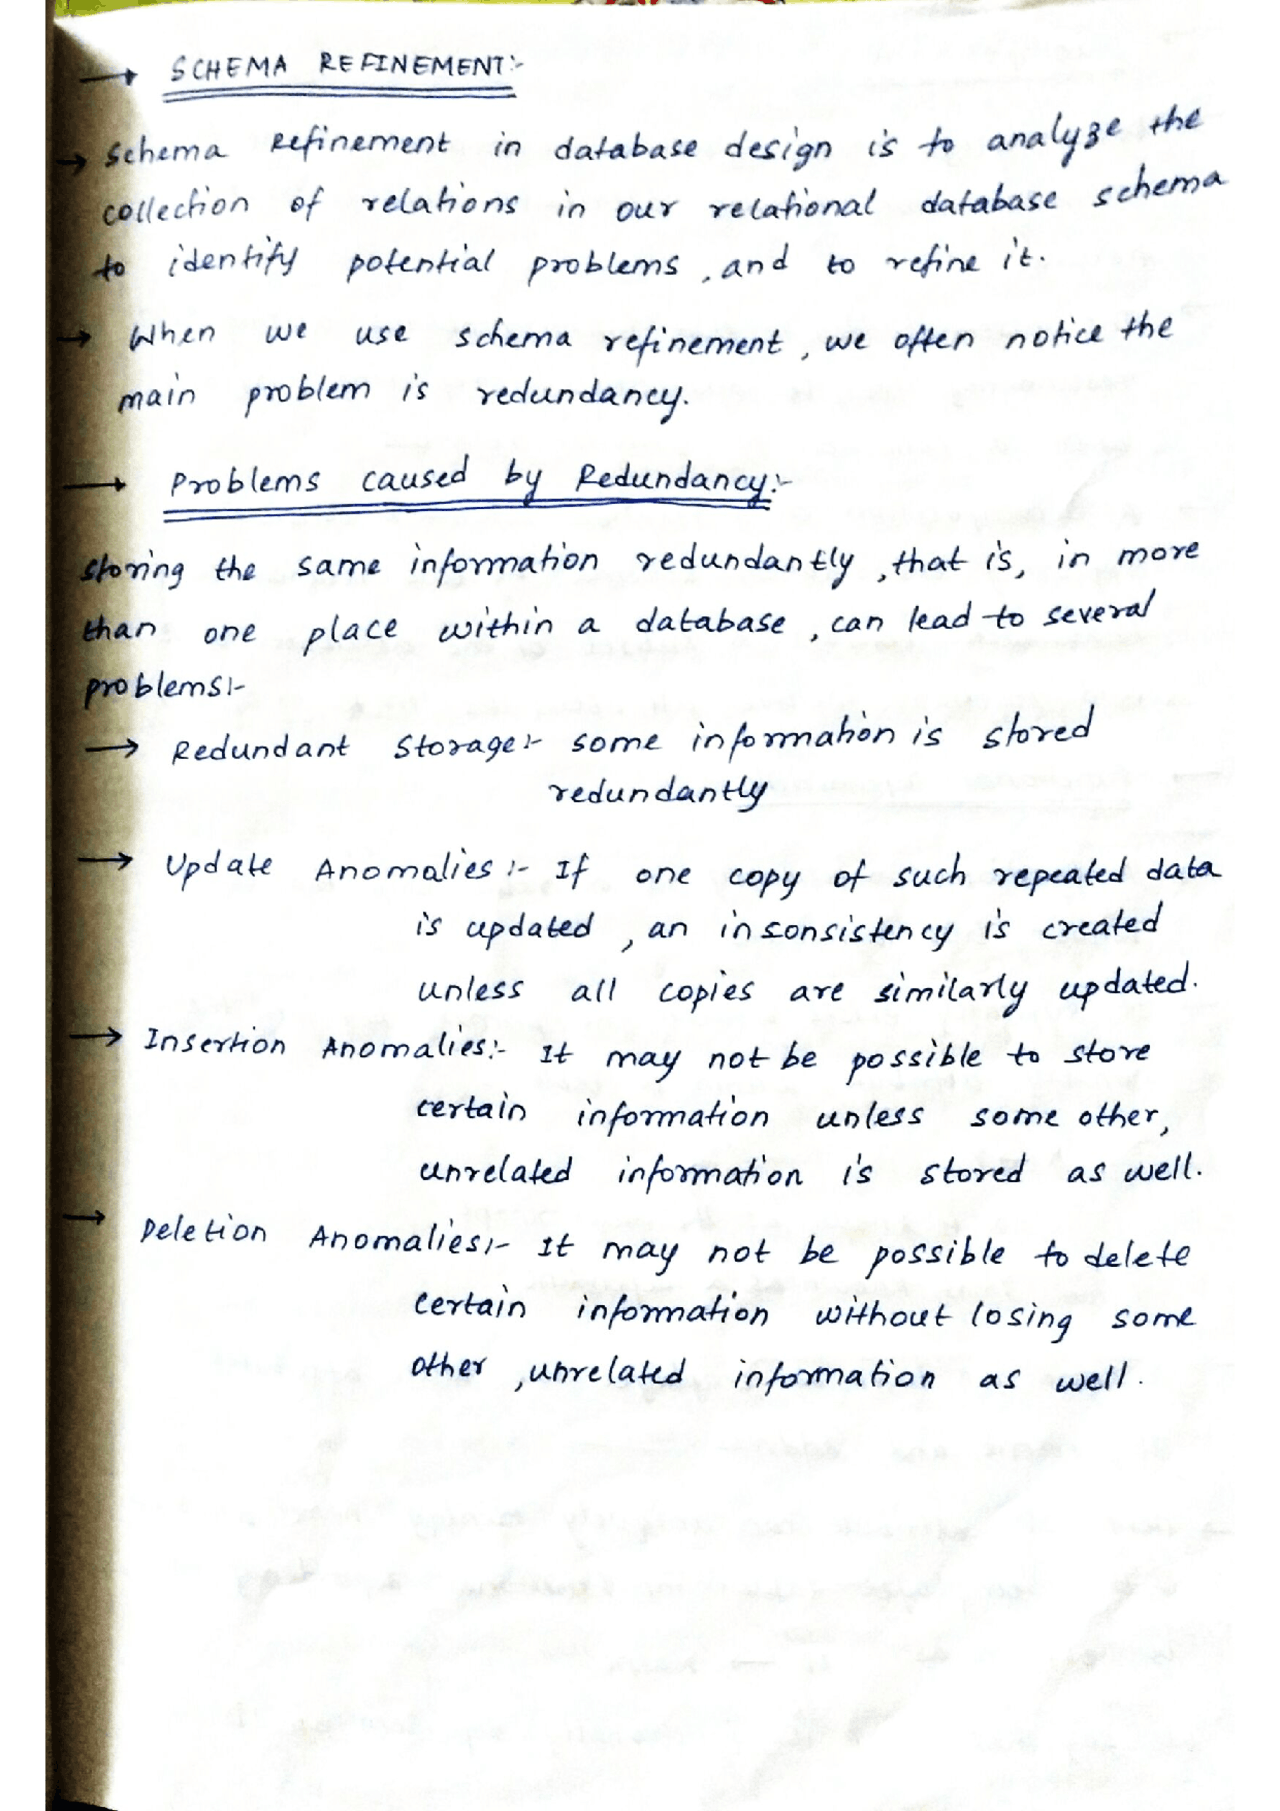 → SCHEMA REFINEMENT:-
→ Schema Refinement in database design is to analyze the
collection of relations in our relational database schema
to identify potential problems, and to refine it.
→ When we use schema refinement, we often notice the
main problem is redundancy.
→ Problems caused by Redundancy:-
storing the same information redundantly, that is, in more
than one place within a database, can lead to several
problems:-
→ Redundant Storage:- some information is stored
redundantly
→ Update Anomalies:- If one copy of such repeated data
is updated, an insonsistency is created
unless all copies are similarly updated.
→ Insertion Anomalies:- It may not be possible to store
certain information unless some other,
unrelated information is stored as well.
→ Deletion Anomalies:- It may not be possible to delete
certain information without losing some
other, unrelated information as well.